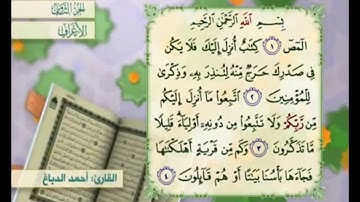 الجزء الثامن
الأعراف
بِسْمِ اللَّهِ الرَّحْمَٰنِ الرَّحِيمِ
الٓمٓصٓ ١ كِتَٰبٌ أُنزِلَ إِلَيْكَ فَلَا يَكُن
فِى صَدْرِكَ حَرَجٌ مِّنْهُ لِتُنذِرَ بِهِۦ وَذِكْرَىٰ
لِلْمُؤْمِنِينَ ٢ ٱتَّبِعُوا۟ مَآ أُنزِلَ إِلَيْكُم
مِّن رَّبِّكُمْ وَلَا تَتَّبِعُوا۟ مِن دُونِهِۦٓ أَوْلِيَآءَ ۗ قَلِيلًا
مَّا تَذَكَّرُونَ ٣ وَكَم مِّن قَرْيَةٍ أَهْلَكْنَٰهَا
فَجَآءَهَا بَأْسُنَا بَيَٰتًا أَوْ هُمْ قَآئِلُونَ ٤
القارئ: أحمد الدباغ